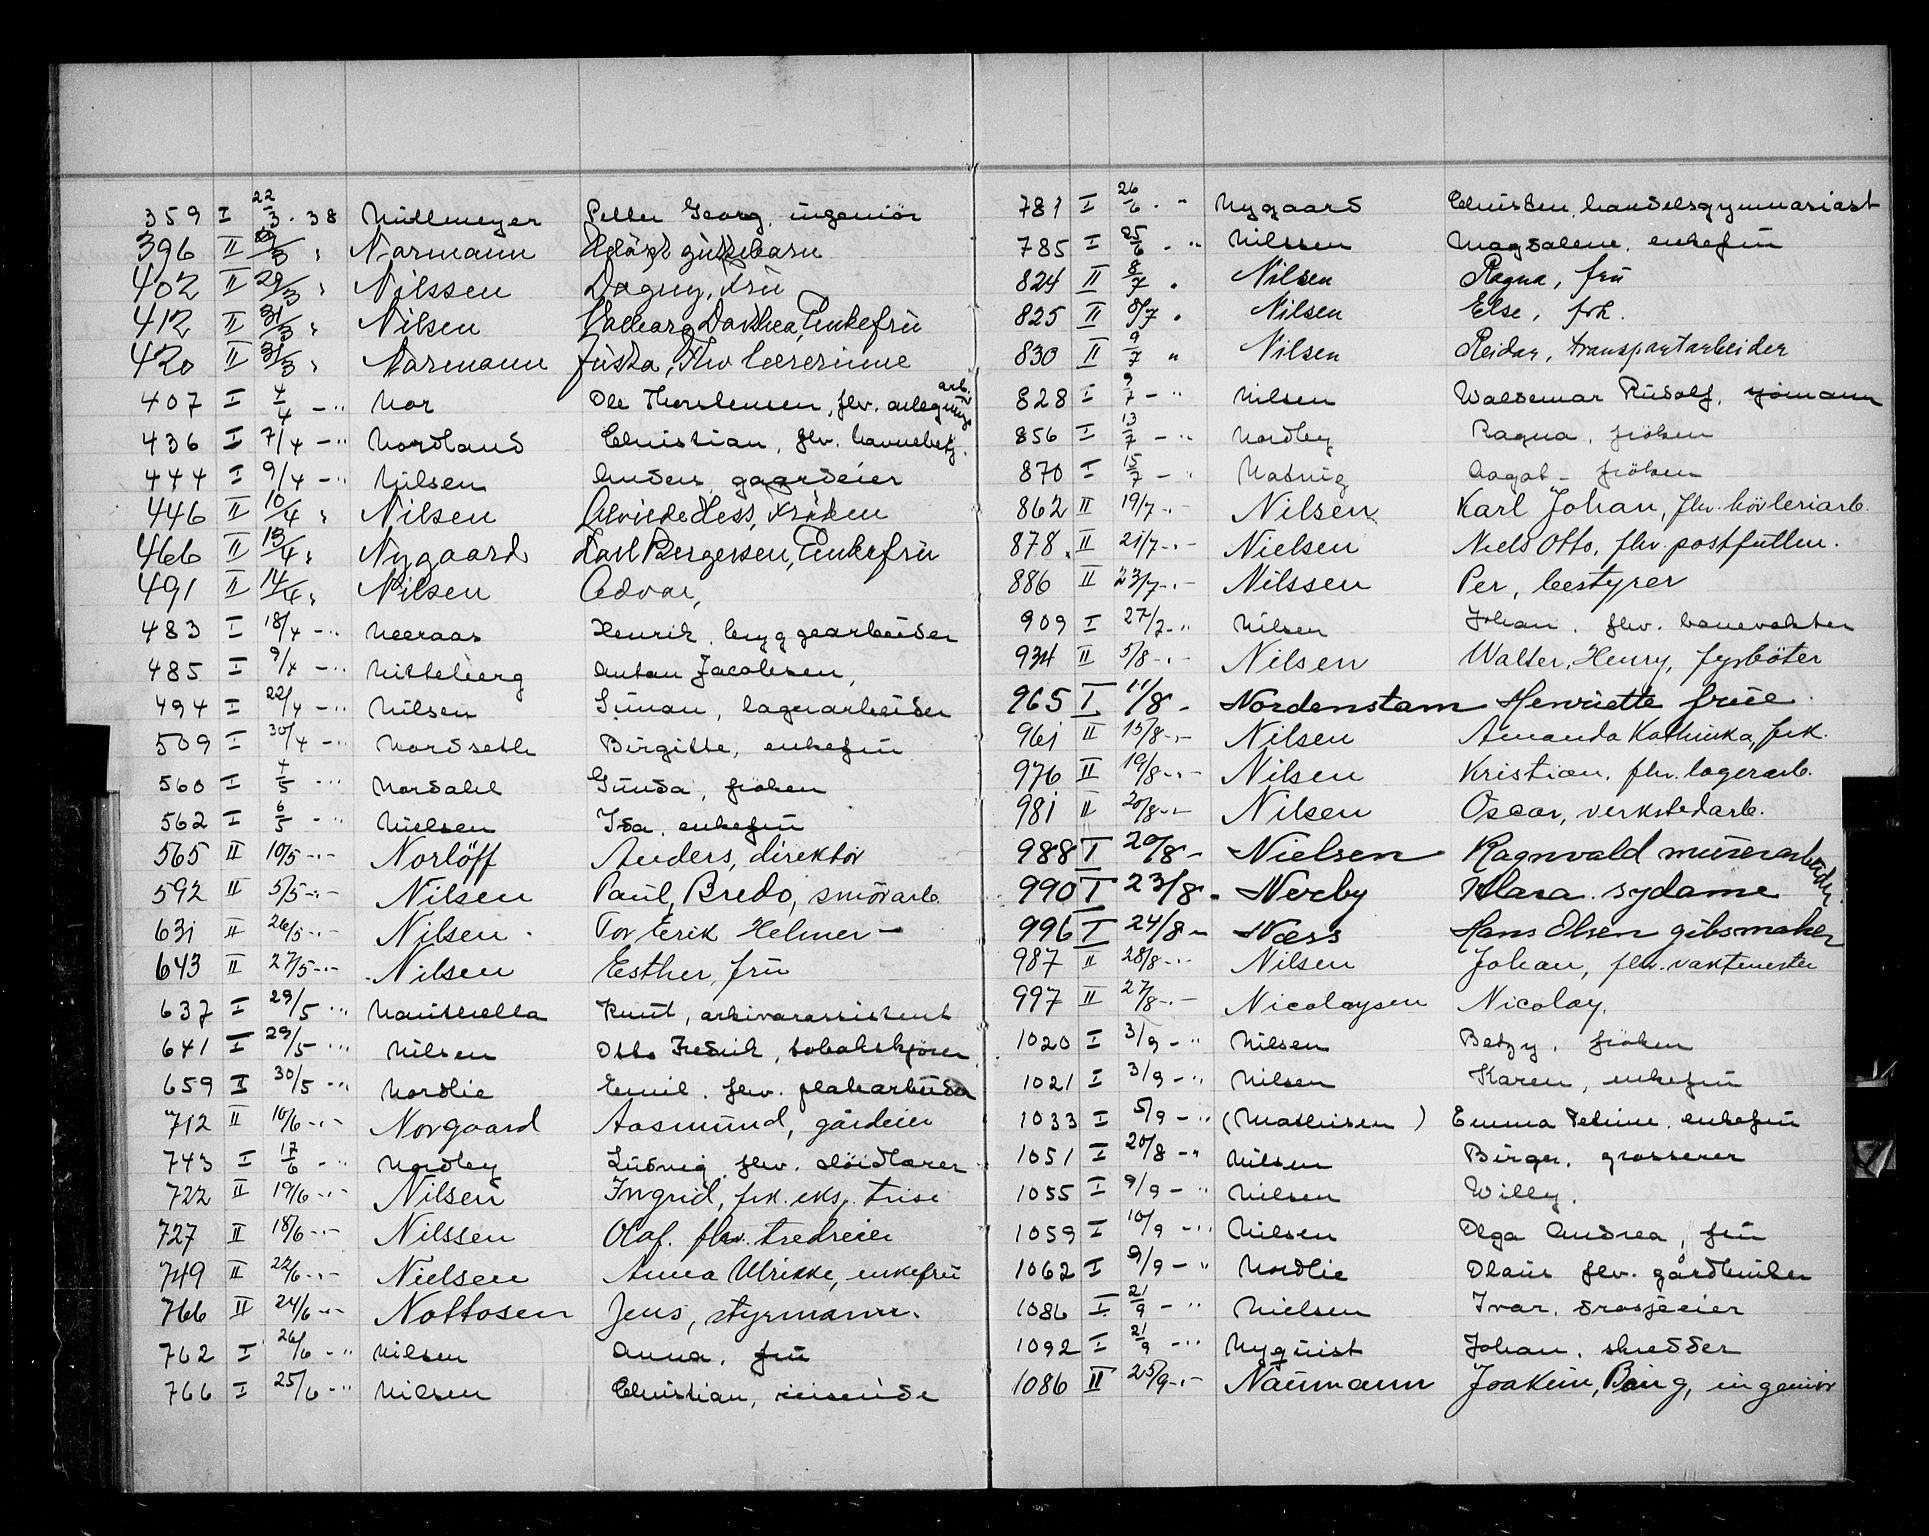 359 I 22/3 . 38 Petter Georg, ingeniör
396 II 29/3 " Narmann
402 II 29/3 " Nilssen Dagny, fru
412 II 31/3 " Nilsen Dorthea, Enkefru
420 II 31/3 " Narmann lærerinne
407 I 4/4 - " Nor Ole Thorstensen, fhv. anlegningsarb.
436 I 7/4 - " Nordland Christian, fhv. havnebetj.
444 I 9/4 - " Nilsen Anders gaardeier
446 II 10/4 " Nilsen Hess, fröken
466 II 13/4 " Nygaard Bergersen, Enkefru
491 II 14/4 " Nilsen Advar,
483 I 18/4 - " Neeraas Henrik, bryggearbeider
485 I 9/4 - " Nitteberg Anton Jacobsen,
494 I 22/4 - " Nilsen Gunnar, lagerarbeider
509 I 30/4 - " Nordseth Birgitte, enkefru
560 I 4/5 - " Nordahl Gunda, fröken
562 I 6/5 - " Nielsen Isa, enkefru
565 II 10/5 - " - Norlöff Anders, direktör
592 II 5/5 - " - Nilsen Paul, Bredo, smörarb.
631 II 26/5 - " - Nilsen Tor Erik Helmer -
643 II 27/5 - " - Nilsen Esther, fru
637 I 29/5 - " Knut, arkivarassistent
641 I 29/5 - " Nilsen Otto Fredrik, tobakskjörer
659 I 30/5 - " Nordlie Emil, fhv. platearbeider
712 II 10/6 - " - Norgaard Aasmund, gårdeier
743 I 17/6 - " Nordby Ludvig, fhv. slöidlærer
722 II 19/6 - " - Nilsen Ingrid, frk. eksp. trise
727 II 18/6 - " - Nilssen Olaf, fhv.
749 II 22/6 - " - Nielsen Anna Ulrikke, enkefru
766 II 24/6 - " - Nottosen Jens, styrmann.
762 I 26/6 - " Nilsen Anna, fru
766 I 25/6 - " Nilsen Christian, reisende
781 I 26/6 - " Nygaard Christen, handelsgymnasiast
785 I 25/6 - " Nilssen Magdalene, enkefru
824 II 8/7 " Nilsen Ragna, fru
825 II 8/7 " Nilsen Else, frk.
830 II 9/7 " Nilsen Reidar, transportarbeider
828 I 9/7 - " Nilsen Waldemar Rudolf, sjömann
856 I 13/7 - " Nordby Ragna, fröken
870 I 15/7 - " Nadvig Aagot - fröken
862 II 19/7 - " Nilsen Karl Johan, fhv. hövleriarb.
878 II 21/7 - " - Nielsen Niels Otto, fhv. postfullm.
886 II 23/7 - " - Nilssen Per, bestyrer
909 I 27/7 - " Nilsen Johan, fhv. banevokter
934 II 5/8 - " - Nilsen Walter, Henry, fyrböter
965 I 11/8 - Nordenstam Henriette fruee
961 II 15/8 - " - Nilsen Amanda Kathinka, frk.
976 II 19/8 - " - Nilsen Kristian, fhv. lagerarb.
981 II 20/8 - " - Nilsen Oscar, verkstedarb.
988 I 20/8 - Nielsen Ragnvald murerarbeider
990 I 23/8 - Nerby Klara sydame
996 I 24/8 - Næss Hans Olsen gibsmaker
987 II 28/8 - " - Nilsen Johan, fhv. vaktmester
997 II 27/8 - " - Nicolaysen Nicolay,
1020 I 3/9 - " Nilsen Betzy, fröken
1021 I 3/9 - " Nilsen Karen, enkefru
1033 I 5/9 - " (Mathisen) Emma Petrine, enkefru
1051 I 20/8 - " Nilsen Birger, grosserer
1055 I 9/9 - " Nilsen Willy.
1059 I 10/9 - " Nilsen Olga Andrea, fru
1062 I 9/9 - " Nordlie Olaus fhv. gårdbruker
1086 I 21/9 - " Nielsen Ivar, drosjeeier
1092 I 21/9 - " Nyquist Johan, skredder
1086 II 25/9 - " - Naumann Joakim, Bing, ingeniör